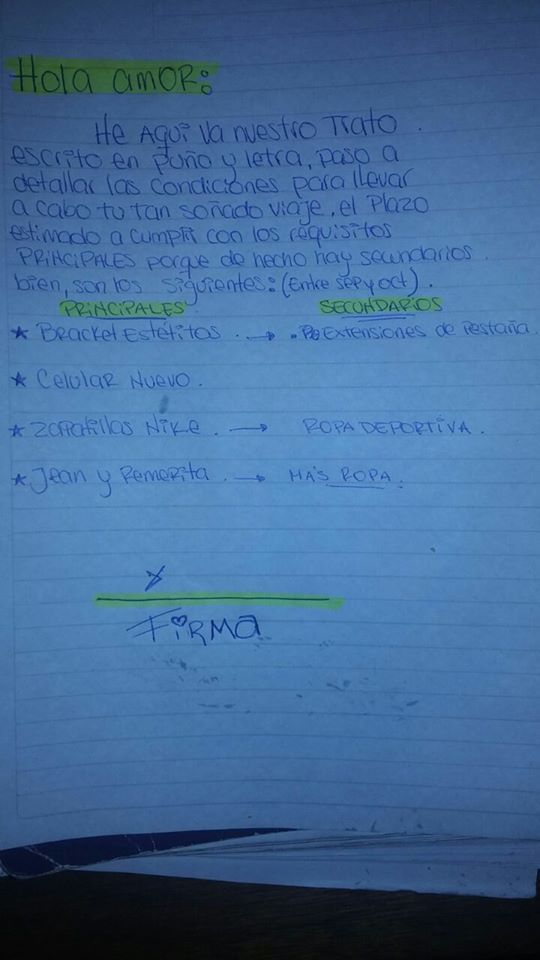 Hola amor:
He Aqui va nuestro Trato.
escrito en puño y letra, paso a
detallar las condiciones para llevar
a cabo tu tan soñado viaje, el Plazo
estimado a cumplir con los requisitos
PRINCIPALES porque de hecho hay secundarios.
bien, son los siguientes: (Entre sep y oct).
PRINCIPALES SECUNDARIOS
* Bracket Estétitos. → Extensiones de Pestaña.
* Celular Nuevo.
* Zapatillas Nike. → ROPA DEPORTIVA.
* Jean y Remerita. → MÁS ROPA.
x
FiRMa